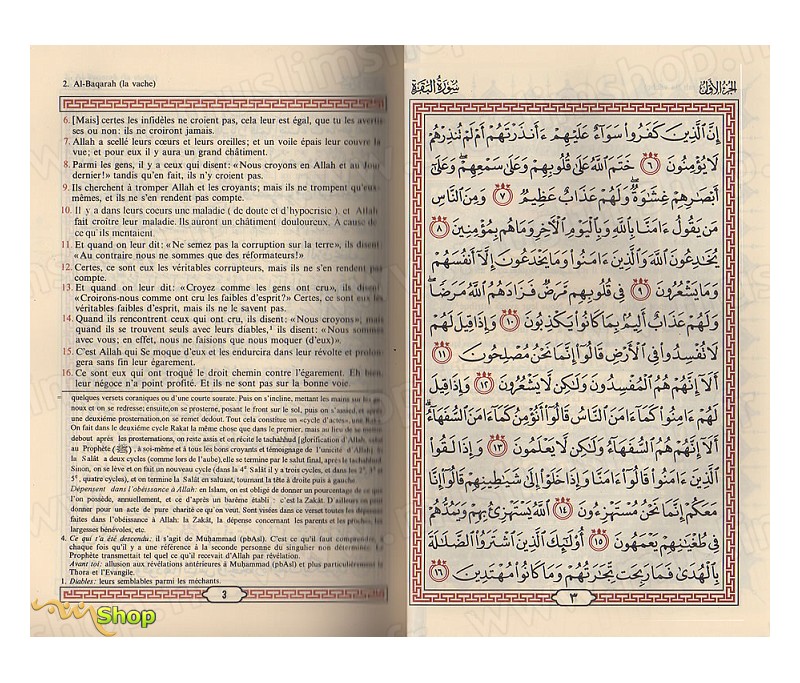 2. Al-Baqarah (la vache)
6. [Mais] certes les infidèles ne croient pas, cela leur est égal, que tu les avertis-
ses ou non: ils ne croiront jamais.
7. Allah a scellé leurs cœurs et leurs oreilles; et un voile épais leur couvre la
vue; et pour eux il y aura un grand châtiment.
8. Parmi les gens, il y a ceux qui disent: «Nous croyons en Allah et au Jour
dernier!» tandis qu'en fait, ils n'y croient pas.
9. Ils cherchent à tromper Allah et les croyants; mais ils ne trompent qu'eux-
mêmes, et ils ne s'en rendent pas compte.
10. Il y a dans leurs cœurs une maladie ( de doute et d'hypocrisie ). et Allah
fait croître leur maladie. Ils auront un châtiment douloureux. A cause de
ce qu'ils mentaient.
11. Et quand on leur dit: «Ne semez pas la corruption sur la terre», ils disent:
«Au contraire nous ne sommes que des réformateurs!»
12. Certes, ce sont eux les véritables corrupteurs, mais ils ne s'en rendent pas
compte.
13. Et quand on leur dit: «Croyez comme les gens ont cru», ils disent:
«Croirons-nous comme ont cru les faibles d'esprit?» Certes, ce sont eux les
véritables faibles d'esprit, mais ils ne le savent pas.
14. Quand ils rencontrent ceux qui ont cru, ils disent: «Nous croyons»; mais
quand ils se trouvent seuls avec leurs diables,¹ ils disent: «Nous sommes
avec vous; en effet, nous ne faisions que nous moquer (d'eux)».
15. C'est Allah qui Se moque d'eux et les endurcira dans leur révolte et prolon-
gera sans fin leur égarement.
16. Ce sont eux qui ont troqué le droit chemin contre l'égarement. Eh bien,
leur négoce n'a point profité. Et ils ne sont pas sur la bonne voie.
= quelques versets coraniques ou d'une courte sourate. Puis on s'incline, mettant les mains sur les ge-
noux et on se redresse; ensuite, on se prosterne, posant le front sur le sol, puis on s'assied, et après
une deuxième prosternation, on se remet debout. Tout cela constitue un «cycle d'actes», une Rakat.
On fait dans le deuxième cycle Rakat la même chose que dans le premier, mais au lieu de se mettre
debout après les prosternations, on reste assis et on récite le tachahhud [glorification d'Allah, salut
au Prophète (ﷺ), à soi-même et à tous les bons croyants et témoignage de l'unicité d'Allah]. Si
la Salât a deux cycles (comme lors de l'aube), elle se termine par le salut final, après le tachahhud.
Sinon, on se lève et on fait un nouveau cycle (dans la 4e Salât il y a trois cycles, et dans les 2e, 3e et
5e, quatre cycles), et on termine la Salât en saluant, tournant la tête à droite puis à gauche.
Dépensent dans l'obéissance à Allah: en Islam, on est obligé de donner un pourcentage de ce que
l'on possède, annuellement, et ce d'après un barème établi : c'est la Zakât. D'ailleurs on peut
donner pour un acte de pure charité ce qu'on veut. Sont visées dans ce verset toutes les dépenses
faites dans l'obéissance à Allah: la Zakât, la dépense concernant les parents et les proches, les
largesses bénévoles, etc.
4. Ce qui t'a été descendu: il s'agit de Muḥammad (pbAsl). C'est ce qu'il faut comprendre
chaque fois qu'il y a une référence à la seconde personne du singulier non déterminée. Le
Prophète transmettait tel quel ce qu'il recevait d'Allah par révélation.
Avant toi: allusion aux révélations antérieures à Muḥammad (pbAsl) et plus particulièrement la
Thora et l'Evangile.
1. Diables: leurs semblables parmi les méchants.
3
Shop
سُورَةُ البَقَرَةِ
الجزء الأول
إِنَّ ٱلَّذِينَ كَفَرُوا۟ سَوَآءٌ عَلَيْهِمْ ءَأَنذَرْتَهُمْ أَمْ لَمْ تُنذِرْهُمْ
لَا يُؤْمِنُونَ ٦ خَتَمَ ٱللَّهُ عَلَىٰ قُلُوبِهِمْ وَعَلَىٰ سَمْعِهِمْ ۖ وَعَلَىٰٓ
أَبْصَٰرِهِمْ غِشَٰوَةٌ ۖ وَلَهُمْ عَذَابٌ عَظِيمٌ ٧ وَمِنَ ٱلنَّاسِ
مَن يَقُولُ ءَامَنَّا بِٱللَّهِ وَبِٱلْيَوْمِ ٱلْءَاخِرِ وَمَا هُم بِمُؤْمِنِينَ ٨
يُخَٰدِعُونَ ٱللَّهَ وَٱلَّذِينَ ءَامَنُوا۟ وَمَا يَخْدَعُونَ إِلَّآ أَنفُسَهُمْ
وَمَا يَشْعُرُونَ ٩ فِى قُلُوبِهِم مَّرَضٌ فَزَادَهُمُ ٱللَّهُ مَرَضًا ۖ
وَلَهُمْ عَذَابٌ أَلِيمٌۢ بِمَا كَانُوا۟ يَكْذِبُونَ ١٠ وَإِذَا قِيلَ لَهُمْ
لَا تُفْسِدُوا۟ فِى ٱلْأَرْضِ قَالُوٓا۟ إِنَّمَا نَحْنُ مُصْلِحُونَ ١١
أَلَآ إِنَّهُمْ هُمُ ٱلْمُفْسِدُونَ وَلَٰكِن لَّا يَشْعُرُونَ ١٢ وَإِذَا قِيلَ
لَهُمْ ءَامِنُوا۟ كَمَآ ءَامَنَ ٱلنَّاسُ قَالُوٓا۟ أَنُؤْمِنُ كَمَآ ءَامَنَ ٱلسُّفَهَآءُ ۗ
أَلَآ إِنَّهُمْ هُمُ ٱلسُّفَهَآءُ وَلَٰكِن لَّا يَعْلَمُونَ ١٣ وَإِذَا لَقُوا۟
ٱلَّذِينَ ءَامَنُوا۟ قَالُوٓا۟ ءَامَنَّا وَإِذَا خَلَوْا۟ إِلَىٰ شَيَٰطِينِهِمْ قَالُوٓا۟ إِنَّا
مَعَكُمْ إِنَّمَا نَحْنُ مُسْتَهْزِءُونَ ١٤ ٱللَّهُ يَسْتَهْزِئُ بِهِمْ وَيَمُدُّهُمْ
فِى طُغْيَٰنِهِمْ يَعْمَهُونَ ١٥ أُو۟لَٰٓئِكَ ٱلَّذِينَ ٱشْتَرَوُا۟ ٱلضَّلَٰلَةَ
بِٱلْهُدَىٰ فَمَا رَبِحَت تِّجَٰرَتُهُمْ وَمَا كَانُوا۟ مُهْتَدِينَ ١٦
٣